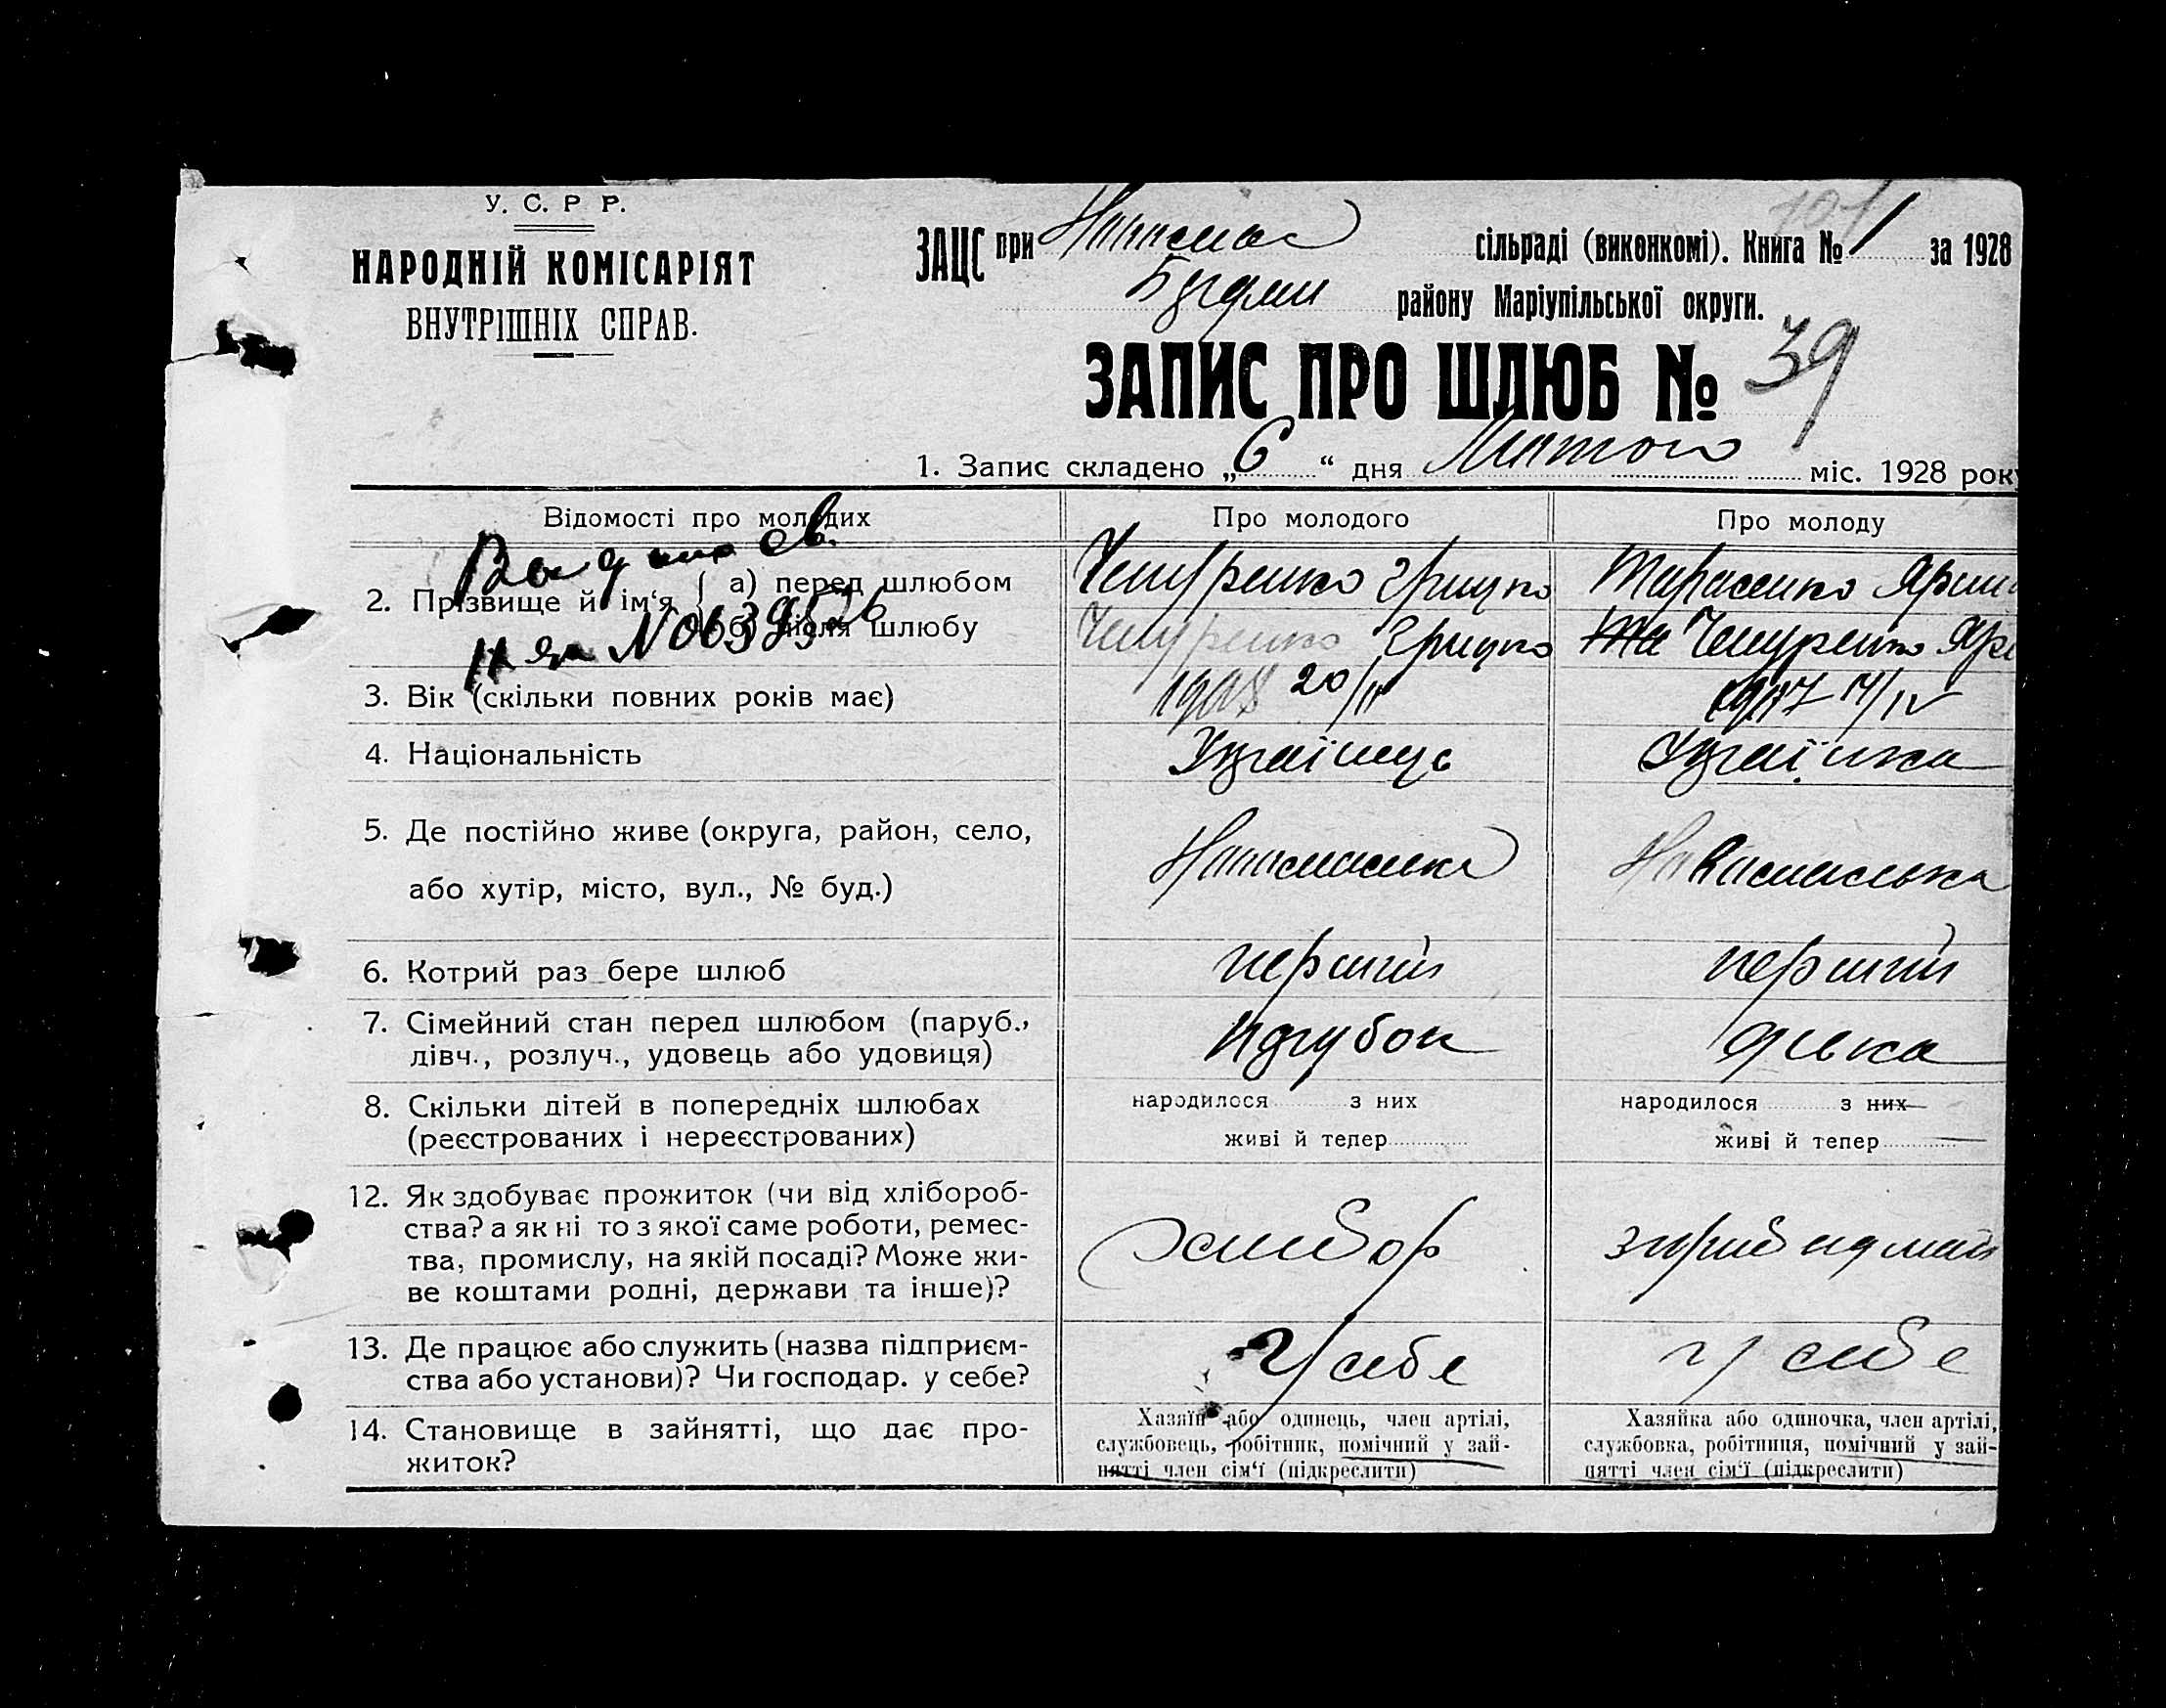 У. С. Р Р.
НАРОДНІЙ КОМІСАРІЯТ
ВНУТРІШНІХ СПРАВ.
ЗАЦС при сільраді (виконкомі). Книга № 1 за 1928
району Маріупільської округи.
ЗАПИС ПРО ШЛЮБ № 39
1. Запис складено „6“ дня Лютого міс. 1928 року
Відомості про молодих
Про молодого
Про молоду
2. Прізвище й ім‘я { а) перед шлюбом
б) після шлюбу
Чепуренко Грицко
Тарасенко
Чепуренко Грицко
Чепуренко
3. Вік (скільки повних років має)
20/II
4. Національність
Українець
Українка
5. Де постійно живе (округа, район, село,
або хутір, місто, вул., № буд.)
6. Котрий раз бере шлюб
перший
перший
7. Сімейний стан перед шлюбом (паруб.,
дівч., розлуч., удовець або удовиця)
парубок
дівка
8. Скільки дітей в попередніх шлюбах
(реєстрованих і нереєстрованих)
народилося з них
живі й тепер
народилося з них
живі й тепер
12. Як здобуває прожиток (чи від хлібороб-
ства? а як ні то з якої саме роботи, ремес-
тва, промислу, на якій посаді? Може жи-
ве коштами родні, держави та інше)?
13. Де працює або служить (назва підприєм-
ства або установи)? Чи господар. у себе?
у себе
у себе
14. Становище в зайнятті, що дає про-
житок?
Хазяїн або одинець, член артілі,
службовець, робітник, помічний у зай-
нятті член сім‘ї (підкреслити)
Хазяйка або одиночка, член артілі,
службовка, робітниця, помічний у зай-
нятті член сім‘ї (підкреслити)